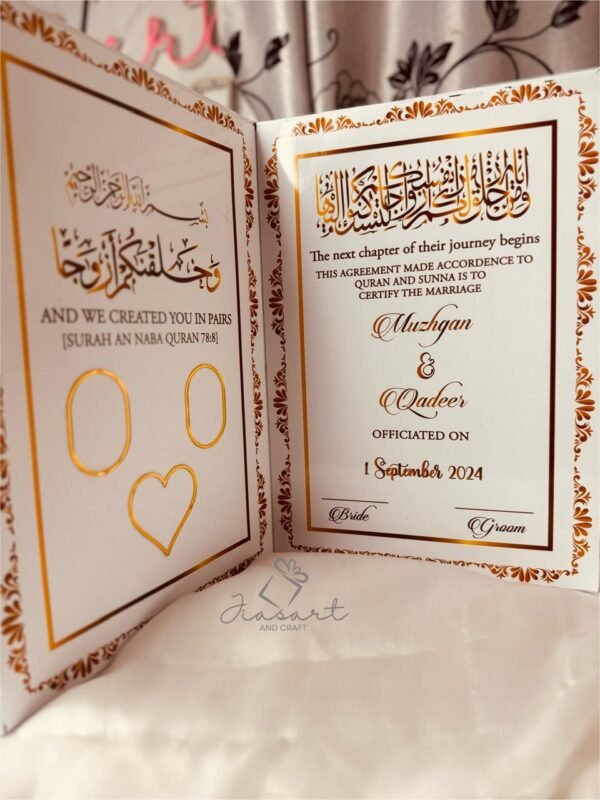 بسم الله الرحمن الرحيم
وَخَلَقْنَٰكُمْ أَزْوَٰجًا
AND WE CREATED YOU IN PAIRS
[SURAH AN NABA QURAN 78:8]
ومن آياته أن خلق لكم من أنفسكم أزواجا لتسكنوا إليها
The next chapter of their journey begins
THIS AGREEMENT MADE ACCORDENCE TO
QURAN AND SUNNA IS TO
CERTIFY THE MARRIAGE
Muzhgan
&
Qadeer
OFFICIATED ON
1 September 2024
Bride
Groom
Jiasart
AND CRAFT